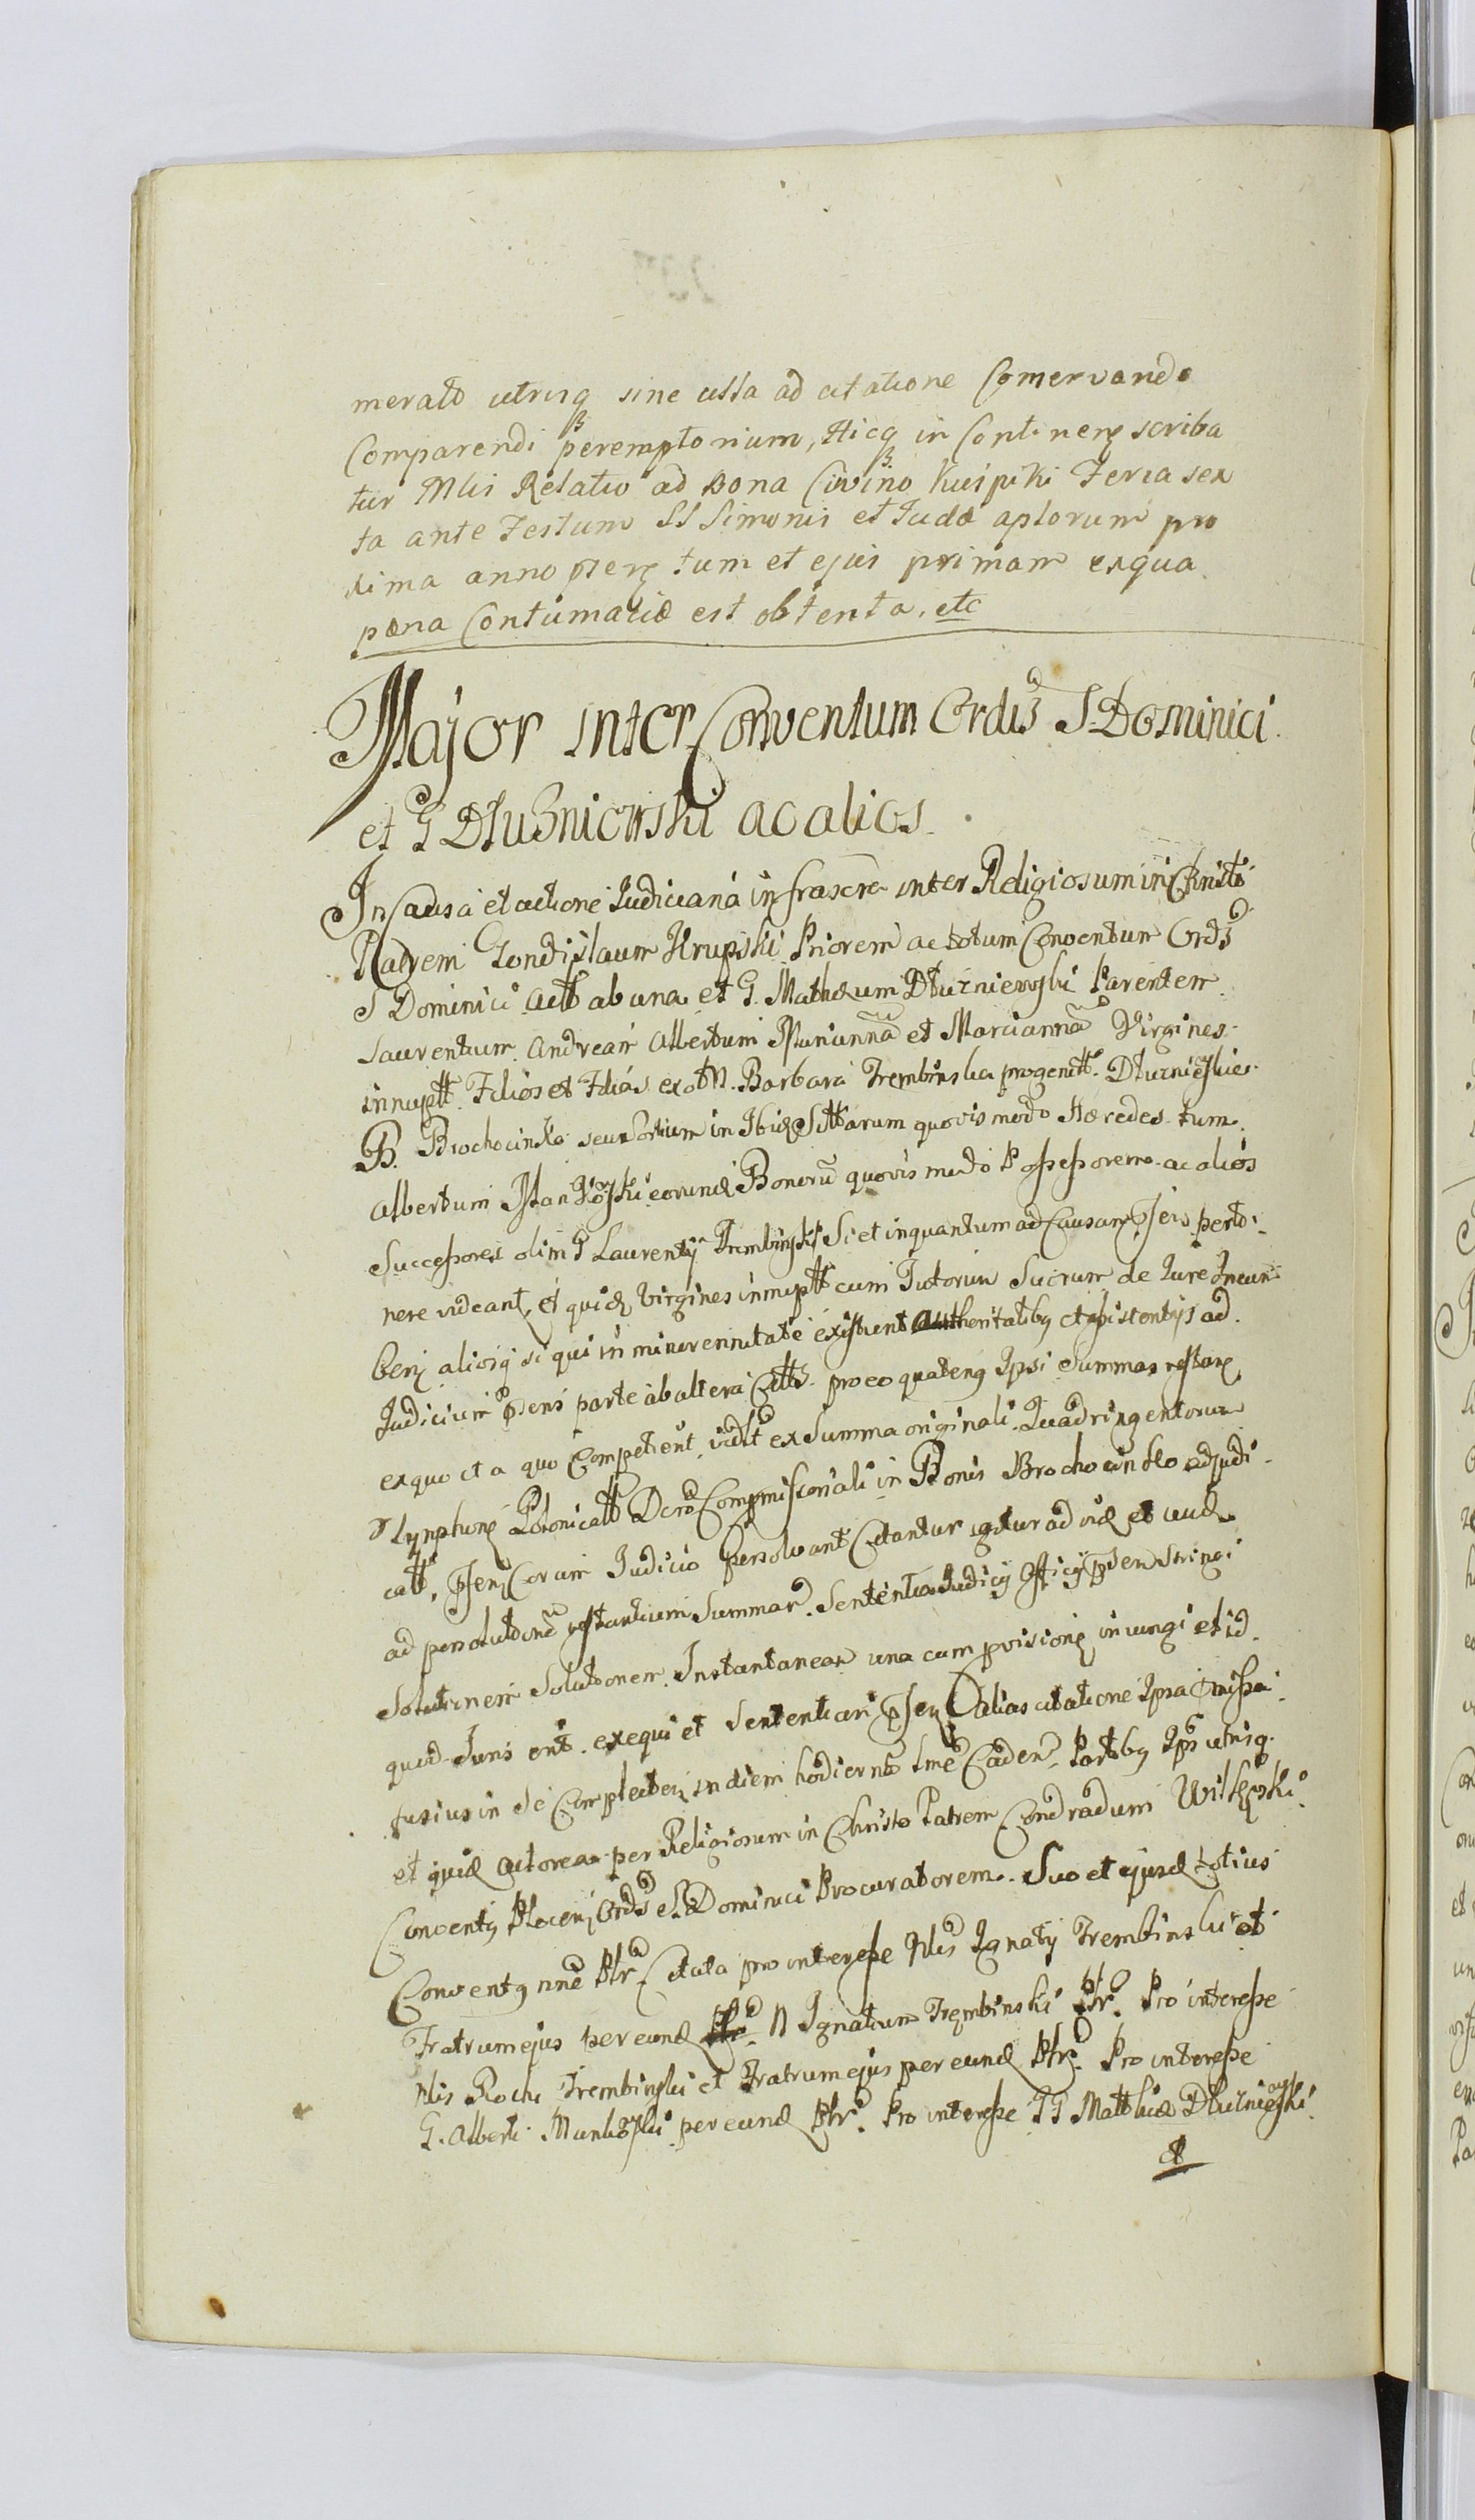 merato utrisq sine ulla ad citatione Conservando
Comparendi peremptorium, Hicq in Continenę scriba
tur Mlis Relatio ad Bona Civino Kuipiki Feria sex
ta ante Festum SS Simonis et Judæ aplorum pro
xima anno pserę tum et ejus primam exqua
pæna Contumaciæ est obtenta. etc
Major inter Conventum Ordis S. Dominici
et G Dłużniowski ac alios.
In Causa et actione Judiciaria infrascr inter Religiosum in Christo
Patrem Krupski Priorem ac totum Conventum Ords
S Dominici Actt ab una et G. Mathæum Dłużniewski Parentem
Laurentium Andream Albertum Mariannã et Mariannã Virgines
innuptt. Filios et Filias ex ol N. Barbara Trembinska progenitt. Dłużniewskie
B. Brochocinko seu Sortium in Ibidę Sittarum quovis modo Hæredes tum
Albertum eorundę Bonorũ quovis modo Possessorem ac alios
Successores olim G Laurentij Trembinski Si et inquantum ad Causam psen perti
nere videant, et quidę Virgines innuptt cum Tutorum Suorum de Jure Incum
benę aliosq si qui in minorennitate existunt Authoritatibq et assistentijs ad
Judicium psens parte ab altera Citts. pro eo quatenq Ipsi Summas restanę
ex quo et a quo Competient, vidlt ex Summa originali Quadringentorum
Polonicatt Decrto Commissionali in Bonis Brochocinko adjudi
catt, psenę Coram Judicio persolvant Citantur igitur ad vidę et audę
ad persolutionẽ restantium Summar. Sententia Judicij Officij psen stringi
Solutionem Instantaneam una cum provisionę iniungi et id
quid Juris erit exequi et Sententiari psenę alias citatione Ipsa missa
fusius in se Complectenę in diem hodiernã Lme Caden. Partibq Ips utrisq
et quidę Actorea per Religiosum in Christo Patrem Condradum Wilkęski
Conventq Plocenę Ords S. Dominici Procuratorem. Suo et ejusdę totius
Conventq nne Pltr. Citata pro interesse Nlis Ignatij Trembinski et
Fratrum ejus per eundę N Ignatium Trembinski Pltr. Pro interesse
Nlis Rochi Trembinski et Fratrum ejus per eundę Pltr. Pro interesse
G. Alberti per eundę Pltr. Pro interesse GG Matthiæ Dłużniewski
et